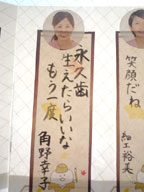 永久歯
生えたらいいな
もう一度
角野幸子
笑顔だね
細工裕美